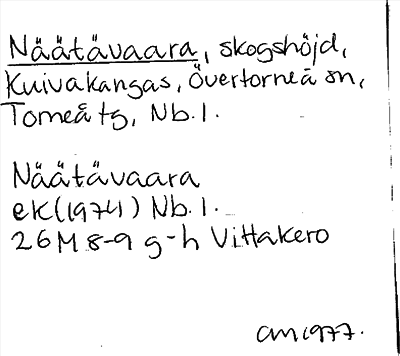 Näätävaara, skogshöjd,
Kuivakangas, Övertorneå sn,
Torneå tg, Nb.l.
Näätävaara
ek(1974) Nb.l.
26M 8-9 g-h Vittakero
CM 1977.